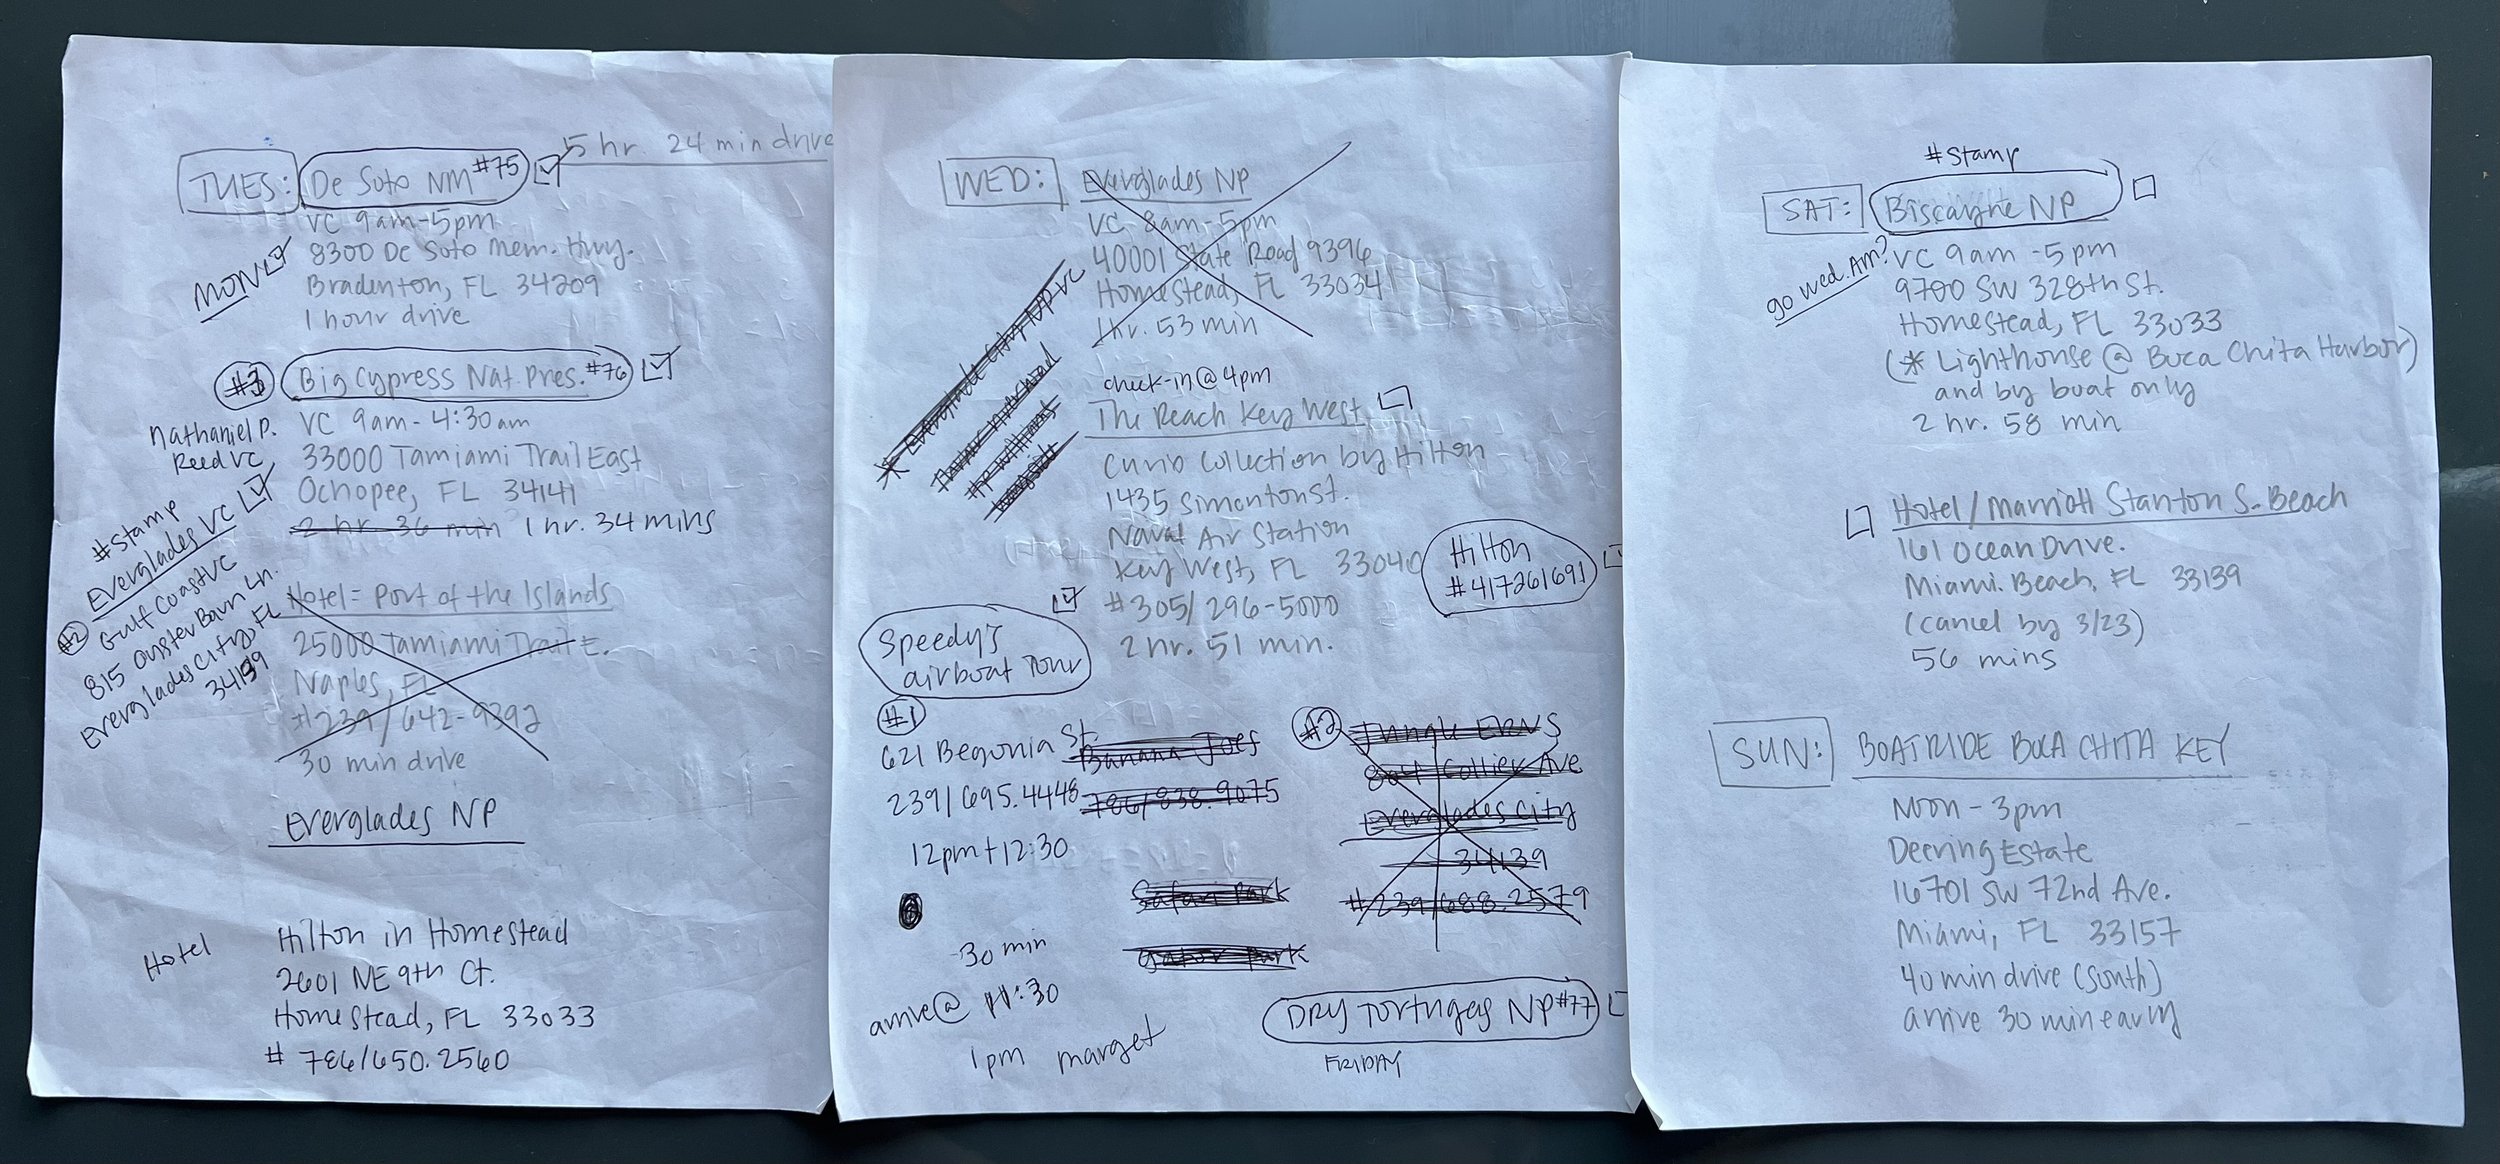 TUES: De Soto NM #75
5 hr. 24 min drive
VC 9am-5pm
MON
8300 De Soto Mem. Hwy.
Bradenton, FL 34209
1 hour drive
#3 Big Cypress Nat. Pres. #76
VC 9am - 4:30am
Nathaniel P.
Reed VC
33000 Tamiami Trail East
Ochopee, FL 34141
2 hr 36 min 1 hr. 34 mins
#Stamp
Everglades VC
#2 Gulf Coast VC
815 Oyster Barn Ln.
Everglades City, FL
34139
Hotel = Port of the Islands
25000 Tamiami Trail E.
Naples, FL
#239/642-9392
30 min drive
Everglades NP
Hotel
Hilton in Homestead
2601 NE 9th Ct.
Homestead, FL 33033
# 786/650.2560
WED: Everglades NP
VC 8am-5pm
40001 State Road 9396
Homestead, FL 33034
1hr. 53 min
* Everglade City NP VC
check-in@4pm
The Reach Key West
Curio Collection by Hilton
1435 Simonton St.
Naval Air Station
Key West, FL 33040
#305/296-5000
2 hr. 51 min.
Hilton
#417261691
Speedy's
airboat Tour
#1
621 Begonia St.
Banana Joes
239/695.4448
786/838.9075
12pm + 12:30
Safari Park
Gator Park
-30 min
arrive@ 11:30
1pm marget
#2 Jungle ERV'S
804 Collier Ave
Everglades City
34139
#239/688.2579
DRY TORTUGAS NP #77
FRIDAY
#Stamp
SAT: Biscayne NP
go wed. Am?
VC 9am - 5pm
9700 SW 328th St.
Homestead, FL 33033
(* Lighthouse @ Boca Chita Harbor)
and by boat only
2 hr. 58 min
Hotel/Marriott Stanton S. Beach
161 Ocean Drive.
Miami. Beach, FL 33139
(cancel by 3/23)
56 mins
SUN: BOATRIDE BOCA CHITA KEY
Noon - 3pm
Deering Estate
16701 SW 72nd Ave.
Miami, FL 33157
40 min drive (South)
arrive 30 min early